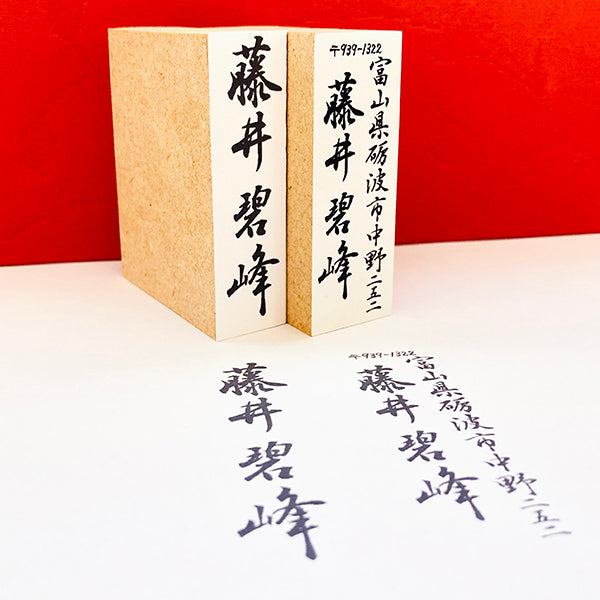 藤井碧峰
〒939-1322
富山県砺波市中野二五二
藤井碧峰
藤井碧峰
〒939-1322
富山県砺波市中野二五二
藤井碧峰